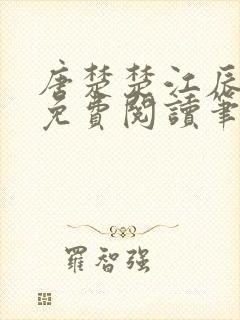 唐楚楚江辰
免費閱讀筆
羅智強